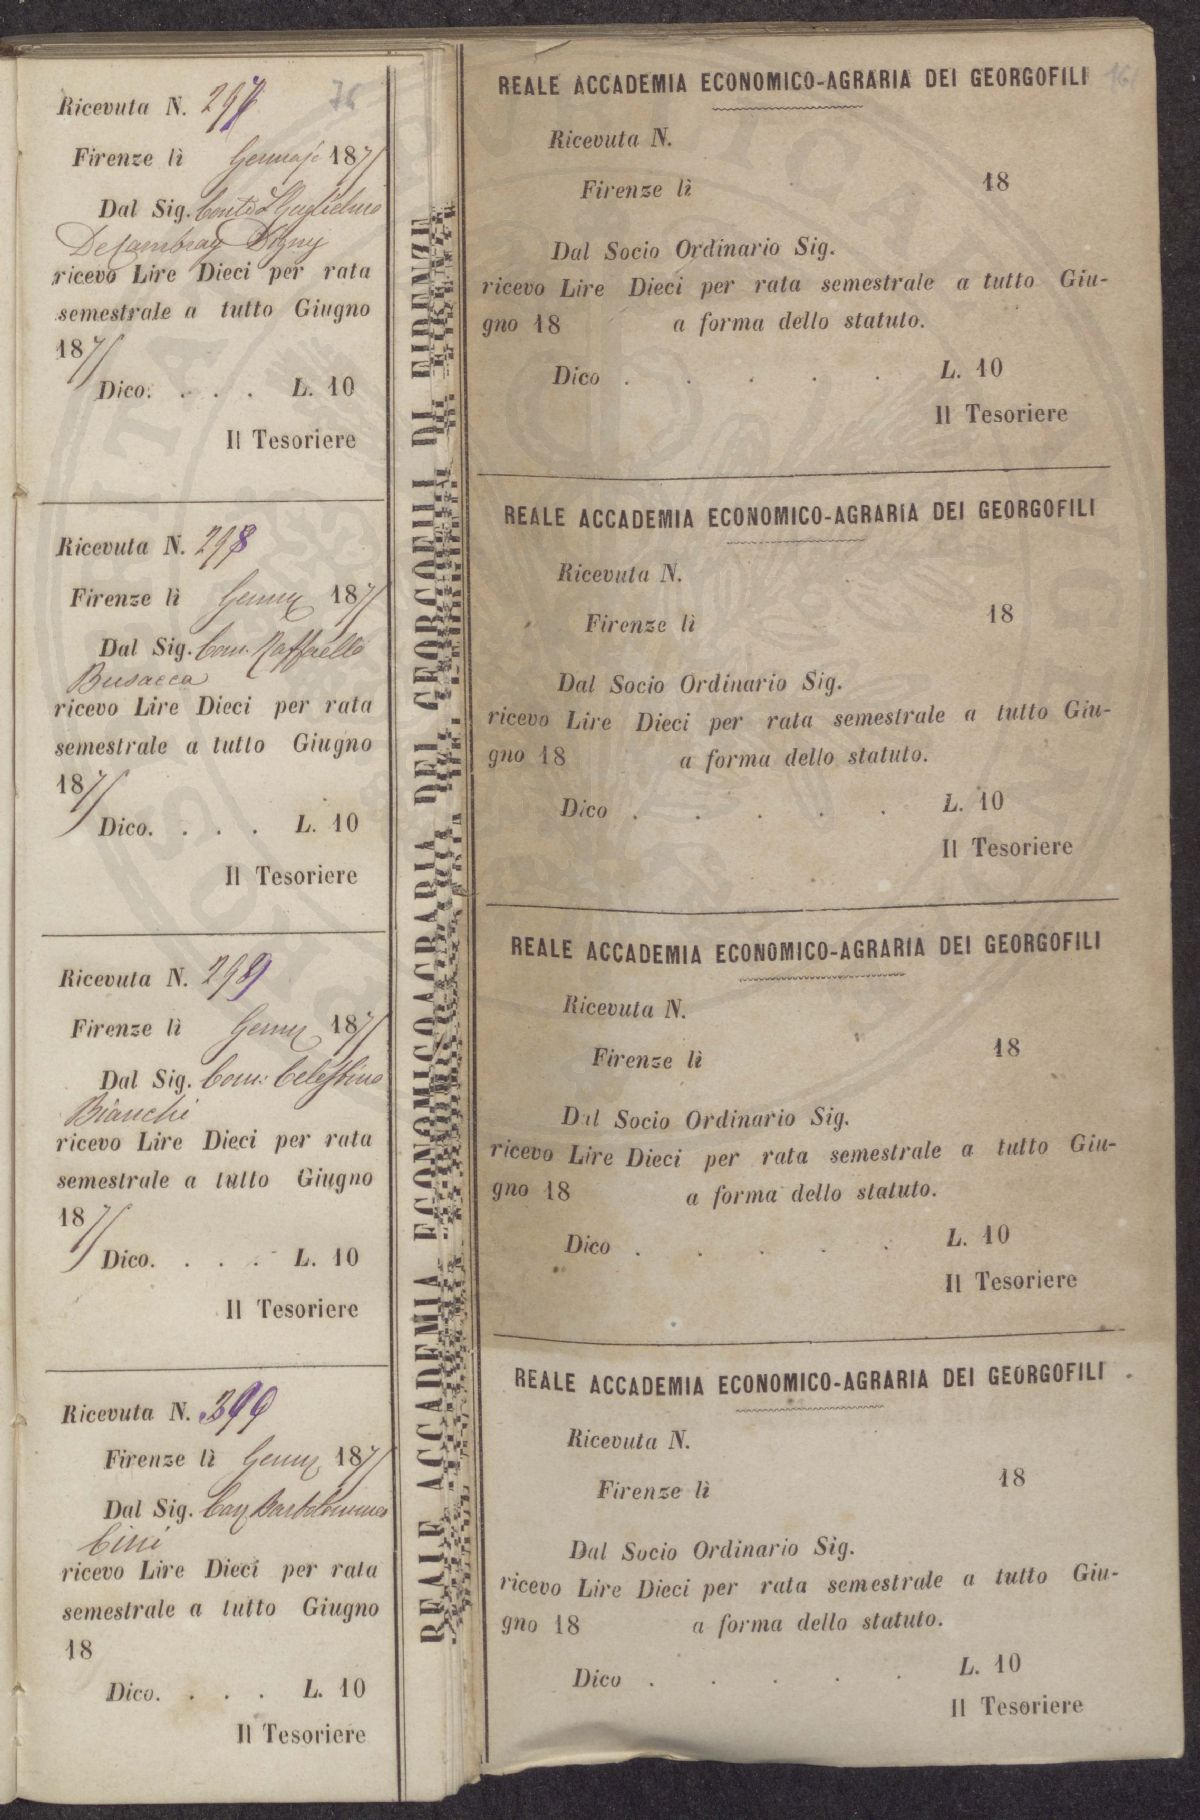 Ricevuta N. 297 76
Firenze lì Gennajo 1871
Dal Sig. Conte Guglielmo
DeCambray Digny
ricevo Lire Dieci per rata
semestrale a tutto Giugno
1871
Dico. . . . L. 10
Il Tesoriere
Ricevuta N. 298
Firenze lì 1871
Dal Sig. Com. Raffaello
Busacca
ricevo Lire Dieci per rata
semestrale a tutto Giugno
1871
Dico. . . . L. 10
Il Tesoriere
Ricevuta N. 299
Firenze lì 1871
Dal Sig. Com: Celestino
Bianchi
ricevo Lire Dieci per rata
semestrale a tutto Giugno
1871
Dico. . . . L. 10
Il Tesoriere
Ricevuta N.
Firenze lì 1871
Dal Sig. Cav Bartolommeo
Cini
ricevo Lire Dieci per rata
semestrale a tutto Giugno
18
Dico. . . . L. 10
Il Tesoriere
REALE ACCADEMIA ECONOMICO AGRARIA DEI GEORGOFILI DI FIRENZE
REALE ACCADEMIA ECONOMICO-AGRARIA DEI GEORGOFILI 161
Ricevuta N.
Firenze lì 18
Dal Socio Ordinario Sig.
ricevo Lire Dieci per rata semestrale a tutto Giu-
gno 18 a forma dello statuto.
Dico . . . . . L. 10
Il Tesoriere
REALE ACCADEMIA ECONOMICO-AGRARIA DEI GEORGOFILI
Ricevuta N.
Firenze lì 18
Dal Socio Ordinario Sig.
ricevo Lire Dieci per rata semestrale a tutto Giu-
gno 18 a forma dello statuto.
Dico . . . . . L. 10
Il Tesoriere
REALE ACCADEMIA ECONOMICO-AGRARIA DEI GEORGOFILI
Ricevuta N.
Firenze lì 18
Dal Socio Ordinario Sig.
ricevo Lire Dieci per rata semestrale a tutto Giu-
gno 18 a forma dello statuto.
Dico . . . . . L. 10
Il Tesoriere
REALE ACCADEMIA ECONOMICO-AGRARIA DEI GEORGOFILI
Ricevuta N.
Firenze lì 18
Dal Socio Ordinario Sig.
ricevo Lire Dieci per rata semestrale a tutto Giu-
gno 18 a forma dello statuto.
Dico . . . . . L. 10
Il Tesoriere